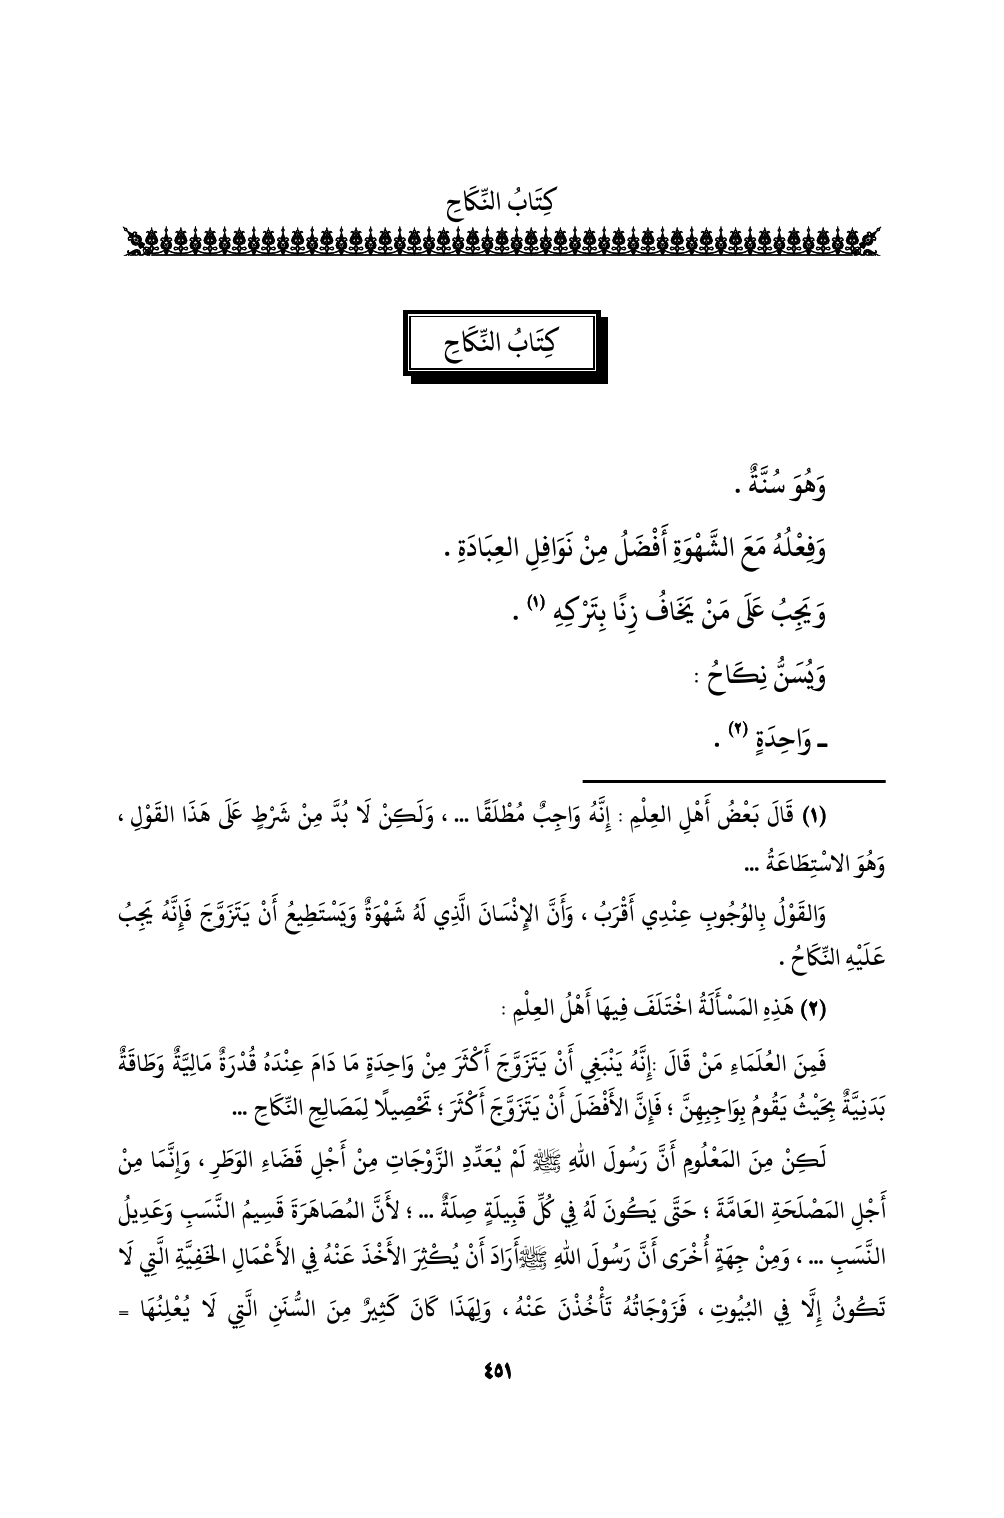 كِتَابُ النِّكَاحِ
كِتَابُ النِّكَاحِ
وَهُوَ سُنَّةٌ .
وَفِعْلُهُ مَعَ الشَّهْوَةِ أَفْضَلُ مِنْ نَوَافِلِ العِبَادَةِ .
وَيَجِبُ عَلَى مَنْ يَخَافُ زِنًا بِتَرْكِهِ (١) .
وَيُسَنُّ نِكَاحُ :
ـ وَاحِدَةٍ (٢) .
(١) قَالَ بَعْضُ أَهْلِ العِلْمِ : إِنَّهُ وَاجِبٌ مُطْلَقًا ... ، وَلَكِنْ لَا بُدَّ مِنْ شَرْطٍ عَلَى هَذَا القَوْلِ ،
وَهُوَ الاسْتِطَاعَةُ ...
وَالقَوْلُ بِالوُجُوبِ عِنْدِي أَقْرَبُ ، وَأَنَّ الإِنْسَانَ الَّذِي لَهُ شَهْوَةٌ وَيَسْتَطِيعُ أَنْ يَتَزَوَّجَ فَإِنَّهُ يَجِبُ
عَلَيْهِ النِّكَاحُ .
(٢) هَذِهِ المَسْأَلَةُ اخْتَلَفَ فِيهَا أَهْلُ العِلْمِ :
فَمِنَ العُلَمَاءِ مَنْ قَالَ :إِنَّهُ يَنْبَغِي أَنْ يَتَزَوَّجَ أَكْثَرَ مِنْ وَاحِدَةٍ مَا دَامَ عِنْدَهُ قُدْرَةٌ مَالِيَّةٌ وَطَاقَةٌ
بَدَنِيَّةٌ بِحَيْثُ يَقُومُ بِوَاجِبِهِنَّ ؛ فَإِنَّ الأَفْضَلَ أَنْ يَتَزَوَّجَ أَكْثَرَ ؛ تَحْصِيلًا لِمَصَالِحِ النِّكَاحِ ...
لَكِنْ مِنَ المَعْلُومِ أَنَّ رَسُولَ اللهِ ﷺ لَمْ يُعَدِّدِ الزَّوْجَاتِ مِنْ أَجْلِ قَضَاءِ الوَطَرِ ، وَإِنَّمَا مِنْ
أَجْلِ المَصْلَحَةِ العَامَّةَ ؛ حَتَّى يَكُونَ لَهُ فِي كُلِّ قَبِيلَةٍ صِلَةٌ ... ؛ لأَنَّ المُصَاهَرَةَ قَسِيمُ النَّسَبِ وَعَدِيلُ
النَّسَبِ ... ، وَمِنْ جِهَةٍ أُخْرَى أَنَّ رَسُولَ اللهِ ﷺأَرَادَ أَنْ يُكْثِرَ الأَخْذَ عَنْهُ فِي الأَعْمَالِ الخَفِيَّةِ الَّتِي لَا
تَكُونُ إِلَّا فِي البُيُوتِ ، فَزَوْجَاتُهُ تَأْخُذْنَ عَنْهُ ، وَلِهَذَا كَانَ كَثِيرٌ مِنَ السُّنَنِ الَّتِي لَا يُعْلِنُهَا =
٤٥١